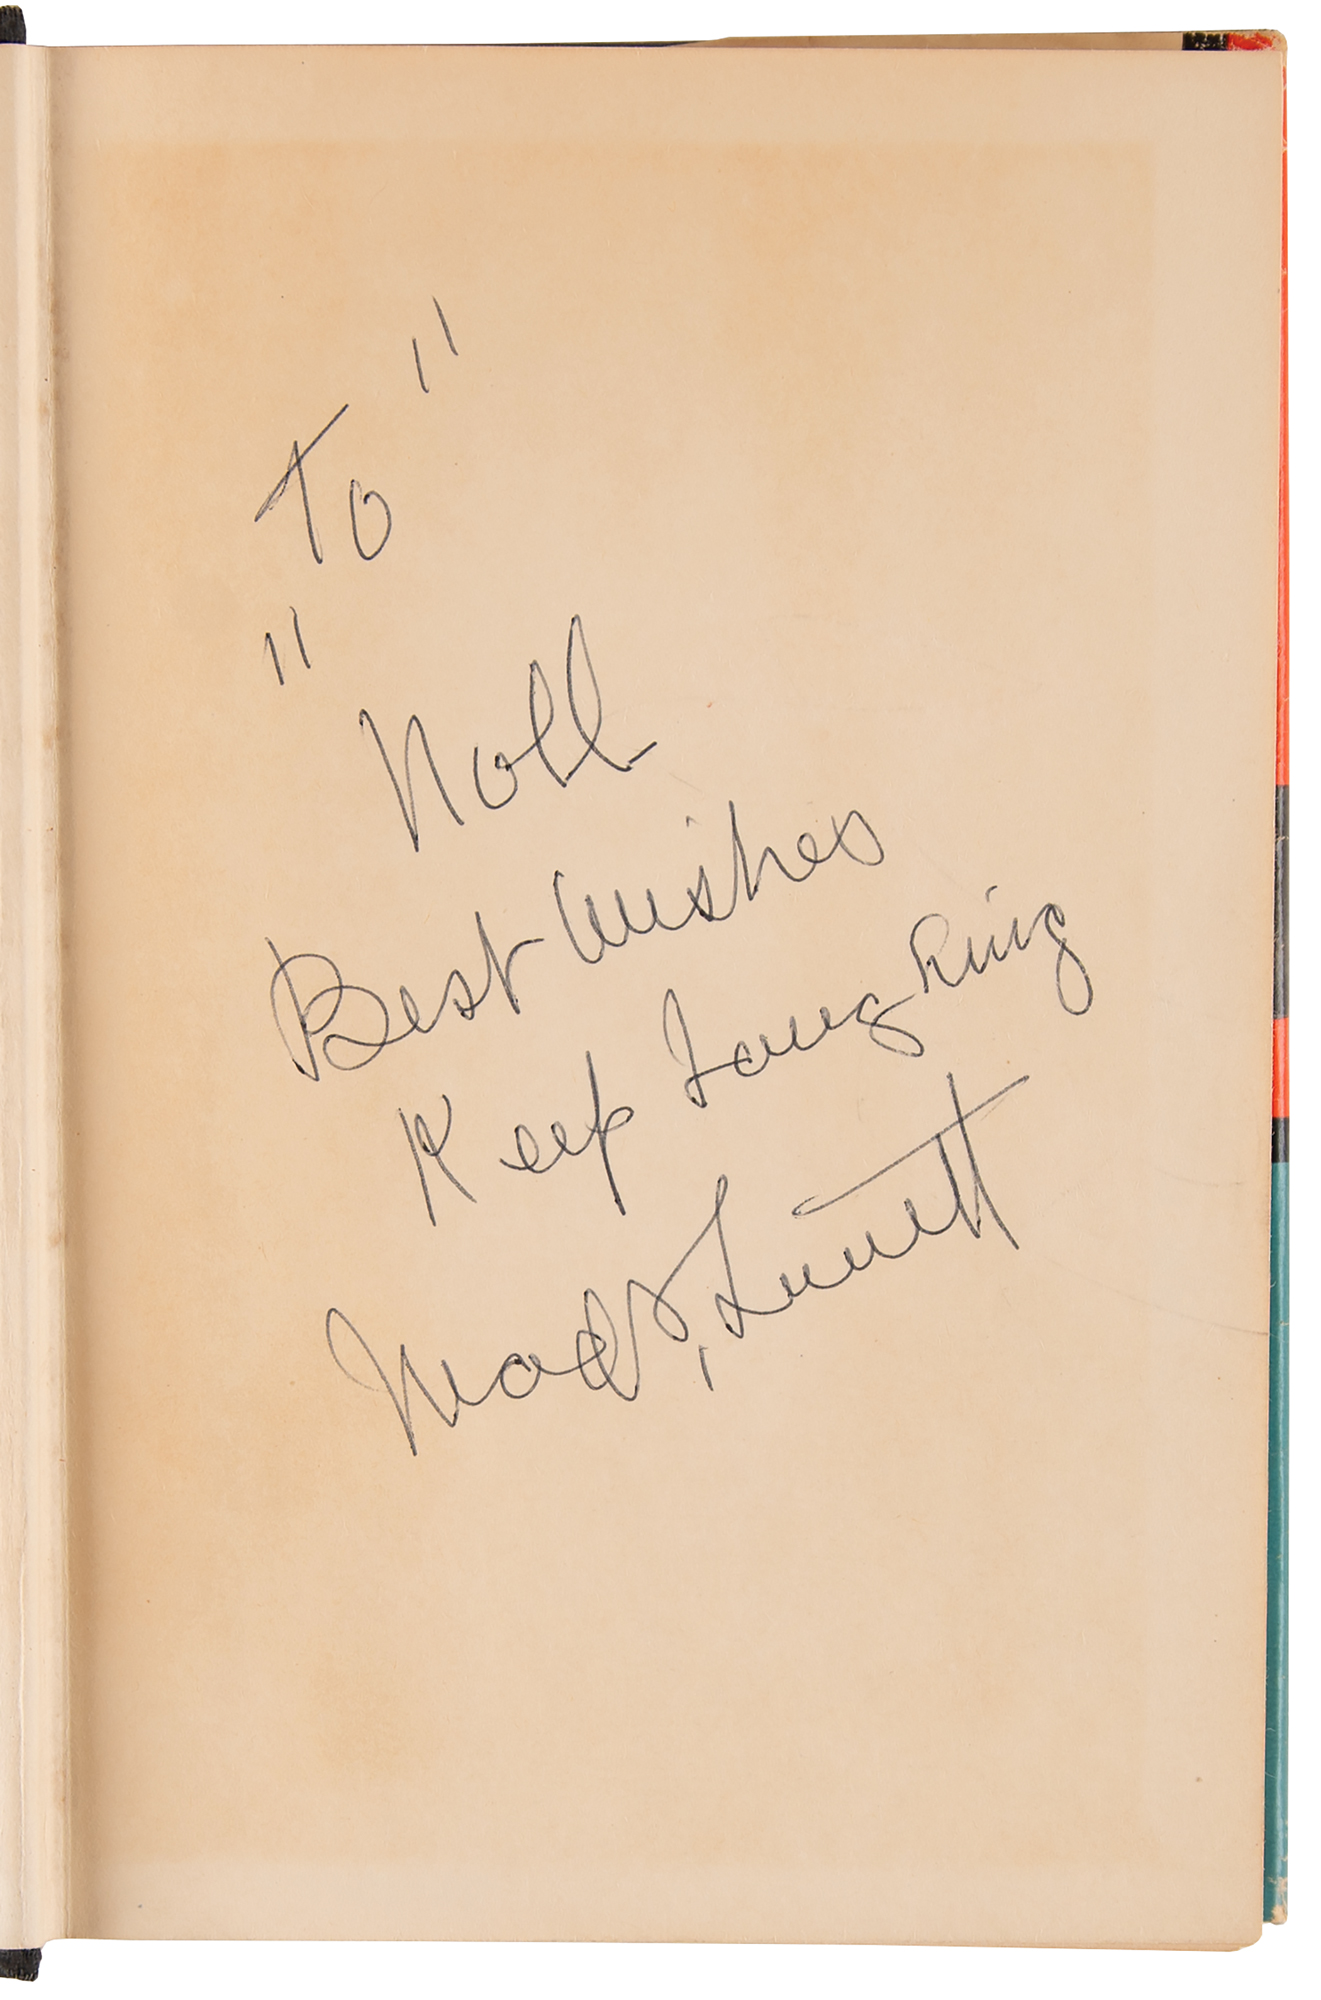 To "
" Noll
Best Wishes
Keep Laughing
Mack Sennett